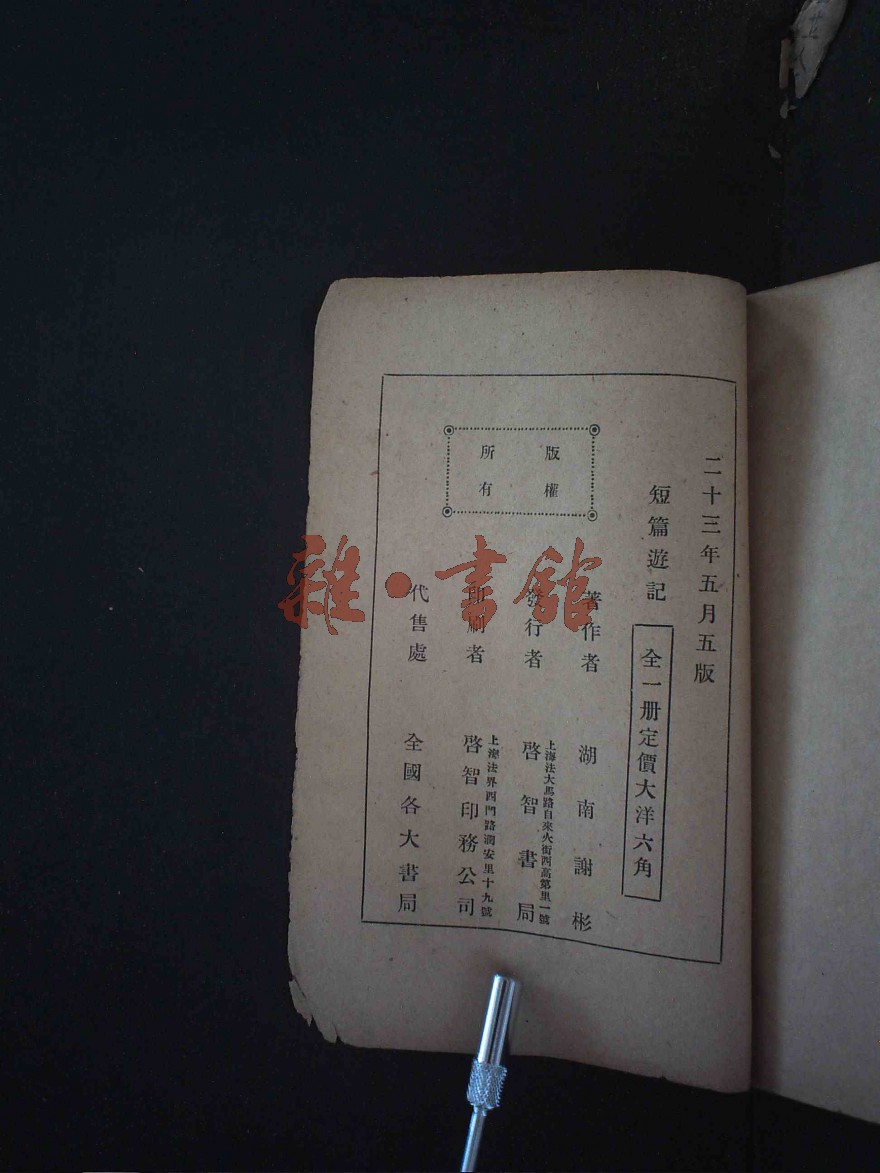 二十三年五月五版
短篇遊記
全一册定價大洋六角
版權
所有
著作者
湖南謝彬
發行者
上海法大馬路自來火街西高第里一號
啓智書局
印刷者
上海法界西門路潤安里十九號
啓智印務公司
代售處
全國各大書局
雜·書館